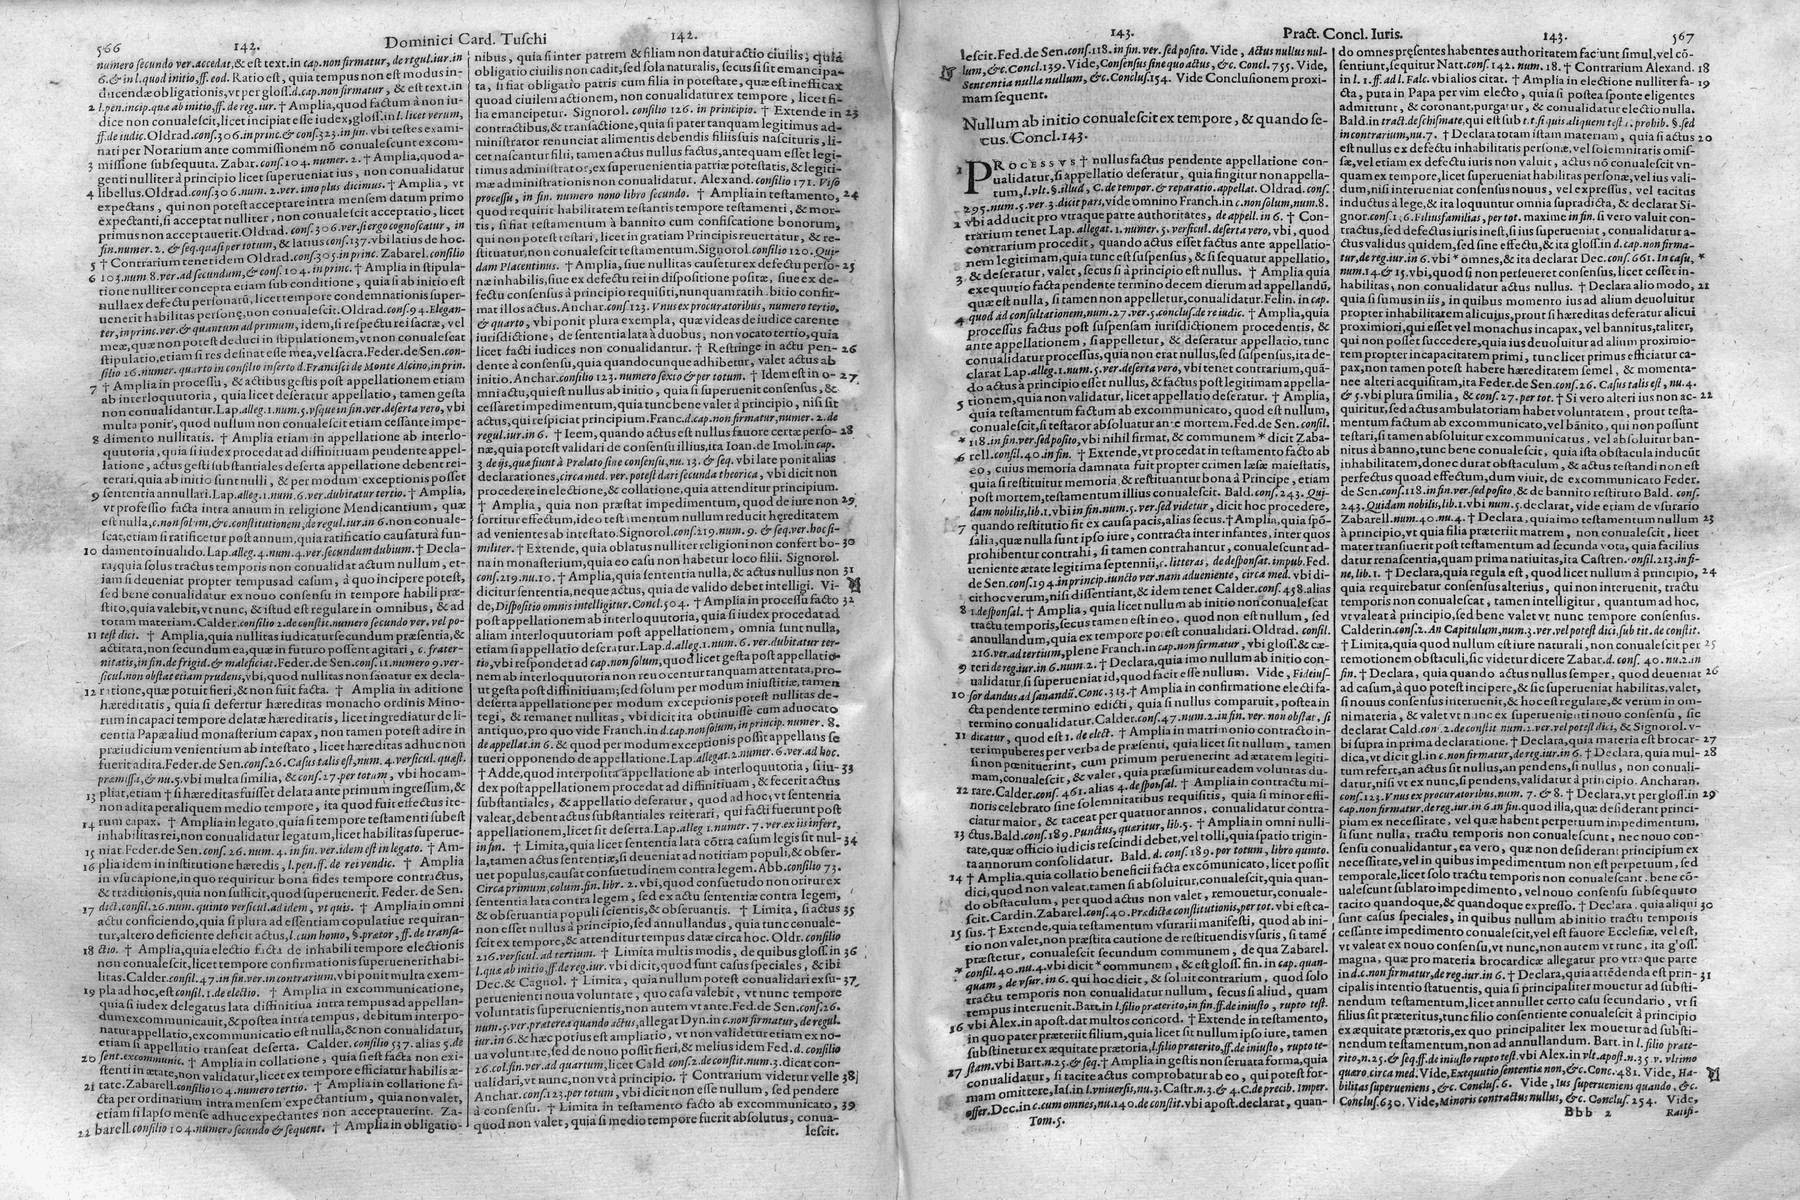 566 142. Dominici Card. Tuschi 142.
numero secundo ver. accedat, & est text. in cap. non firmatur, de regul. iur. in
6. & in l. quod initio, ff. eod. Ratio est, quia tempus non est modus in-
ducendæ obligationis, vt per gloss. d. cap. non firmatur, & est text. in
2 l. pen. incip. quæ ab initio, ff. de reg. iur. † Amplia, quod factum à non iu-
dice non conualescit, licet incipiat esse iudex, gloss. in l. licet verum,
ff. de iudic. Oldrad. cons. 306. in princ. & cons. 323. in fin. vbi testes exami-
nati per Notarium ante commissionem nō conualescunt ex com-
3 missione subsequuta. Zabar. cons. 104. numer. 2. † Amplia, quod a-
genti nulliter à principio licet superueniat ius, non conualidatur
4 libellus. Oldrad. cons. 306. num. 2. ver. imo plus dicimus. † Amplia, vt
expectans, qui non potest acceptare intra mensem datum primo
expectanti, si acceptat nulliter, non conualescit acceptatio, licet
primus non acceptauerit. Oldrad. cons. 306. ver. si ergo cognoscatur, in
fin. numer. 2. & seq. quasi per totum, & latius cons. 137. vbi latius de hoc.
5 † Contrarium tenet idem Oldrad. cons. 305. in princ. Zabarel. consilio
6 103. num. 8. ver. ad secundum, & cons. 104. in princ. † Amplia in stipula-
tione nulliter concepta etiam sub conditione, quia si ab initio est
nulla ex defectu personarū, licet tempore condemnationis super-
uenerit habilitas personę, non conualescit. Oldrad. cons. 94. Elegan-
ter, in princ. ver. & quantum ad primum, idem, si respectu rei sacræ, vel
meæ, quæ non potest deduci in stipulationem, vt non conualescat
stipulatio, etiam si res desinat esse mea, vel sacra. Feder. de Sen. con-
silio 16. numer. quarto in consilio inserto d. Francisci de Monte Alcino, in prin.
7 † Amplia in processu, & actibus gestis post appellationem etiam
ab interloquutoria, quia licet deseratur appellatio, tamen gesta
non conualidantur. Lap. alleg. 1. num. 5. vsque in fin. ver. deserta vero, vbi
multa ponit, quod nullum non conualescit etiam cessante impe-
8 dimento nullitatis. † Amplia etiam in appellatione ab interlo-
quutoria, quia si iudex procedat ad diffinitiuam pendente appel-
latione, actus gesti substantiales deserta appellatione debent rei-
terari, quia ab initio sunt nulli, & per modum exceptionis posset
9 sententia annullari. Lap. alleg. 1. num. 6. ver. dubitatur tertio. † Amplia,
vt professio facta intra annum in religione Mendicantium, quæ
est nulla, c. non solum, & c. constitutionem, de regul. iur. in 6. non conuale-
scat, etiam si ratificetur post annum, quia ratificatio causatur à fun-
10 damento inualido. Lap. alleg. 4. num. 4. ver. secundum dubium. † Decla-
ra, quia solus tractus temporis non conualidat actum nullum, et-
iam si deueniat propter tempus ad casum, à quo incipere potest,
sed bene conualidatur ex nouo consensu in tempore habili præ-
stito, quia valebit, vt nunc, & istud est regulare in omnibus, & ad
totam materiam. Calder. consilio 2. de constit. numero secundo ver. vel po-
11 test dici. † Amplia, quia nullitas iudicatur secundum præsentia, &
actitata, non secundum ea, quæ in futuro possent agitari, c. frater-
nitatis, in fin. de frigid. & maleficiat. Feder. de Sen. cons. 11. numero 9. ver-
sicul. non obstat etiam prudens, vbi, quod nullitas non sanatur ex decla-
12 ratione, quæ potuit fieri, & non fuit facta. † Amplia in aditione
hæreditatis, quia si defertur hæreditas monacho ordinis Mino-
rum incapaci tempore delatæ hæreditatis, licet ingrediatur de li-
centia Papæ aliud monasterium capax, non tamen potest adire in
præiudicium venientium ab intestato, licet hæreditas adhuc non
fuerit adita. Feder. de Sen. cons. 26. Casus talis est, num. 4. versicul. quæst.
præmissa, & nu. 5. vbi multa similia, & cons. 27. per totum, vbi hoc am-
13 pliat, etiam † si hæreditas fuisset delata ante primum ingressum, &
non adita per aliquem medio tempore, ita quod fuit effectus ite-
14 rum capax. † Amplia in legato, quia si tempore testamenti subest
inhabilitas rei, non conualidatur legatum, licet habilitas superue-
15 niat. Feder. de Sen. cons. 26. num. 4. in fin. ver. idem est in legato. † Am-
16 plia idem in institutione hæredis, l. pen. ff. de rei vendic. † Amplia
in vsucapione, in quo requiritur bona fides tempore contractus,
& traditionis, quia non sufficit, quod superuenerit. Feder. de Sen.
17 dict. consil. 26. num. quinto versicul. ad idem, vt quis. † Amplia in omni
actu conficiendo, quia si plura ad essentiam copulatiue requiran-
tur, altero deficiente deficit actus, l. cum homo, §. prætor, ff. de transa-
18 ctio. † Amplia, quia electio facta de inhabili tempore electionis
non conualescit, licet tempore confirmationis superuenerit habi-
litas. Calder. consil. 47. in fin. ver. in contrarium, vbi ponit multa exem-
19 pla ad hoc, est consil. 1. de electio. † Amplia in excommunicatione,
quia si iudex delegatus lata diffinitiua intra tempus ad appellan-
dum excommunicauit, & postea intra tempus, debitum interpo-
natur appellatio, excommunicatio est nulla, & non conualidatur,
etiam si appellatio transeat deserta. Calder. consilio 537. alias 5. de
20 sent. excommunic. † Amplia in collatione, quia si est facta non exi-
stenti in ætate, non validatur, licet ex tempore efficiatur habilis æ-
21 tate. Zabarell. consilio 104. numero tertio. † Amplia in collatione fa-
cta per ordinarium intra mensem expectantium, quia non valet,
etiam si lapso mense adhuc expectantes non acceptauerint. Za-
22 barell. consilio 104. numero secundo & sequent. † Amplia in obligatio-
nibus, quia si inter patrem & filiam non datur actio ciuilis, quia
obligatio ciuilis non cadit, sed sola naturalis, secus si sit emancipa-
ta, si fiat obligatio patris cum filia in potestate, quæ est inefficax
quoad ciuilem actionem, non conualidatur ex tempore, licet fi-
lia emancipetur. Signorol. consilio 126. in principio. † Extende in 23
contractibus, & transactione, quia si pater tanquam legitimus ad-
ministrator renunciat alimentis debendis filiis suis nascituris, li-
cet nascantur filii, tamen actus nullus factus, antequam esset legi-
timus administrator, ex superuenientia patriæ potestatis, & legiti-
mæ administrationis non conualidatur. Alexand. consilio 171. Viso
processu, in fin. numero nono libro secundo. † Amplia in testamento, 24
quod requirit habilitatem testantis tempore testamenti, & mor-
tis, si fiat testamentum à bannito cum confiscatione bonorum,
qui non potest testari, licet in gratiam Principis reuertatur, & re-
stituatur, non conualescit testamentum. Signorol. consilio 120. Qui-
dam Placentinus. † Amplia, siue nullitas causetur ex defectu perso- 25
næ inhabilis, siue ex defectu rei in dispositione positæ, siue ex de-
fectu consensus à principio requisiti, nunquam ratihabitio confir-
mat illos actus. Anchar. cons. 123. Vnus ex procuratoribus, numero tertio,
& quarto, vbi ponit plura exempla, quæ videas de iudice carente
iurisdictione, de sententia lata à duobus, non vocato tertio, quia
licet facti iudices non conualidantur. † Restringe in actu pen- 26
dente à consensu, quia quandocunque adhibetur, valet actus ab
initio. Anchar. consilio 123. numero sexto & per totum. † Idem est in o- 27
mni actu, qui est nullus ab initio, quia si superuenit consensus, &
cessaret impedimentum, quia tunc bene valet à principio, nisi sit
actus, qui respiciat principium. Franc. d. cap. non firmatur, numer. 2. de
regul. iur. in 6. † Item, quando actus est nullus fauore certæ perso- 28
næ, quia potest validari de consensu illius, ita Ioan. de Imol. in cap.
3. de ijs, quæ fiunt à Prælato sine consensu, nu. 13. & seq. vbi late ponit alias
declarationes, circa med. ver. potest dari secunda theorica, vbi dicit non
procedere in electione, & collatione, quia attenditur principium.
† Amplia, quia non præstat impedimentum, quod de iure non 29
sortitur effectum, ideo testimentum nullum reducit hereditatem
ad venientes ab intestato. Signorol. cons. 219. num. 9. & seq. ver. hoc si-
militer. † Extende, quia oblatus nulliter religioni non confert bo- 30
na in monasterium, quia eo casu non habetur loco filii. Signorol.
cons. 219. nu. 10. † Amplia, quia sententia nulla, & actus nullus non 31
dicitur sententia, neque actus, quia de valido debet intelligi. Vi-
de, Dispositio omnis intelligitur. Concl. 504. † Amplia in processu facto 32
post appellationem ab interloquutoria, quia si iudex procedat ad
aliam interloquutoriam post appellationem, omnia sunt nulla,
etiam si appellatio deseratur. Lap. d. alleg. 1. num. 6. ver. dubitatur ter-
tio, vbi respondet ad cap. non solum, quod licet gesta post appellatio-
nem ab interloquutoria non reuocentur tanquam attentata, pro-
ut gesta post diffinitiuam, sed solum per modum iniustitiæ, tamen
deserta appellatione per modum exceptionis potest nullitas de-
tegi, & remanet nullitas, vbi dicit ita obtinuisse cum aduocato
antiquo, pro quo vide Franch. in d. cap. non solum, in princip. numer. 8.
de appellat. in 6. & quod per modum exceptionis possit appellans se
tueri opponendo de appellatione. Lap. allegat. 2. numer. 6. ver. ad hoc.
† Adde, quod interposita appellatione ab interloquutoria, si iu- 33
dex post appellationem procedat ad diffinitiuam, & fecerit actus
substantiales, & appellatio deseratur, quod ad hoc, vt sententia
valeat, debent actus substantiales reiterari, qui facti fuerunt post
appellationem, licet sit deserta. Lap. alleg. 1. numer. 7. ver. ex iis infert,
in fin. † Limita, quia licet sententia lata cōtra casum legis sit nul- 34
la, tamen actus sententiæ, si deueniat ad notitiam populi, & obser-
uet populus, causat consuetudinem contra legem. Abb. consilio 73.
Circa primum, colum. fin. libr. 2. vbi, quod consuetudo non oritur ex
sententia lata contra legem, sed ex actu sententiæ contra legem,
& obseruantia populi scientis, & obseruantis. † Limita, si actus 35
non esset nullus à principio, sed annullandus, quia tunc conuale-
scit ex tempore, & attenditur tempus datæ circa hoc. Oldr. consilio
216. versicul. ad tertium. † Limita multis modis, de quibus gloss. in 36
l. quæ ab initio, ff. de reg. iur. vbi dicit, quod sunt casus speciales, & ibi
Dec. & Cagnol. † Limita, quia nullum potest conualidari ex su- 37
peruenienti noua voluntate, quo casu valebit, vt nunc tempore
voluntatis superuenientis, non autem vt ante. Fed. de Sen. cons. 26.
num. 5. ver. præterea quando actus, allegat Dyn. in c. non firmatur, de regul.
iur. in 6. & hæc potius est ampliatio, vt non validetur etiam ex no-
ua voluntate, sed de nouo possit fieri, & melius idem Fed. d. consilio
26. col. fin. ver. ad quartum, licet Cald. cons. 2. de constit. num. 3. dicat con-
ualidari, vt nunc, non vt à principio. † Contrarium videtur velle 38
Anchar. cons. 123. per totum, vbi dicit non esse nullum, sed pendere
à consensu. † Limita in testamento facto ab excommunicato, 39
quod non valet, quia si medio tempore fuerit absolutus, conua-
lescit.
143. Pract. Concl. Iuris. 143. 567
lescit. Fed. de Sen. cons. 118. in fin. ver. sed posito. Vide, Actus nullus nul-
lum, &c. Concl. 139. Vide, Consensus sine quo actus, &c. Concl. 755. Vide,
Sententia nulla nullum, &c. Conclus. 154. Vide Conclusionem proxi-
mam sequent.
Nullum ab initio conualescit ex tempore, & quando se-
cus. Concl. 143.
1 PROCESSVS † nullus factus pendente appellatione con-
ualidatur, si appellatio deseratur, quia fingitur non appella-
tum, l. vlt. §. illud, C. de tempor. & reparatio. appellat. Oldrad. cons.
295. num. 5. ver. 3. dicit pars, vide omnino Franch. in c. non solum, num. 8.
2 vbi adducit pro vtraque parte authoritates, de appell. in 6. † Con-
trarium tenet Lap. allegat. 1. numer. 5. versicul. deserta vero, vbi, quod
contrarium procedit, quando actus esset factus ante appellatio-
nem legitimam, quia tunc est suspensus, & si sequatur appellatio,
3 & deseratur, valet, secus si à principio est nullus. † Amplia quia
exequutio facta pendente termino decem dierum ad appellandū,
quæ est nulla, si tamen non appelletur, conualidatur. Felin. in cap.
4 quod ad consultationem, num. 27. ver. 5. conclus. de re iudic. † Amplia, quia
processus factus post suspensam iurisdictionem procedentis, &
ante appellationem, si appelletur, & deseratur appellatio, tunc
conualidatur processus, quia non erat nullus, sed suspensus, ita de-
clarat Lap. alleg. 1. num. 5. ver. deserta vero, vbi tenet contrarium, quā-
do actus à principio esset nullus, & factus post legitimam appella-
5 tionem, quia non validatur, licet appellatio deseratur. † Amplia,
quia testamentum factum ab excommunicato, quod est nullum,
conualescit, si testator absoluatur ante mortem. Fed. de Sen. consil.
* 118. in fin. ver. sed posito, vbi nihil firmat, & communem * dicit Zaba-
6 rell. consil. 40. in fin. † Extende, vt procedat in testamento facto ab
eo, cuius memoria damnata fuit propter crimen læsæ maiestatis,
quia si restituitur memoria & restituantur bona à Principe, etiam
post mortem, testamentum illius conualescit. Bald. cons. 243. Qui-
dam nobilis, lib. 1. vbi in fin. num. 5. ver. sed videtur, dicit hoc procedere,
7 quando restitutio fit ex causa pacis, alias secus. † Amplia, quia spō-
salia, quæ nulla sunt ipso iure, contracta inter infantes, inter quos
prohibentur contrahi, si tamen contrahantur, conualescunt ad-
ueniente ætate legitima septennii, c. litteras, de desponsat. impub. Fed.
de Sen. cons. 194. in princip. iuncto ver. nam adueniente, circa med. vbi di-
cit hoc verum, nisi dissentiant, & idem tenet Calder. cons. 458. alias
8 1. de sponsal. † Amplia, quia licet nullum ab initio non conualescat
tractu temporis, secus tamen est in eo, quod non est nullum, sed
annullandum, quia ex tempore potest conualidari. Oldrad. consil.
216. ver. ad tertium, plene Franch. in cap. non firmatur, vbi gloss. & cæ-
9 teri de reg. iur. in 6. num. 2. † Declara, quia imo nullum ab initio con-
ualidatur, si superueniat id, quod facit esse nullum. Vide, Fideius-
10 sor dandus ad sanandū. Conc. 313. † Amplia in confirmatione electi fa-
cta pendente termino edicti, quia si nullus comparuit, postea in
termino conualidatur. Calder. cons. 47. num. 2. in fin. ver. non obstat, si
11 dicatur, quod est 1. de elect. † Amplia in matrimonio contracto in-
ter impuberes per verba de præsenti, quia licet sit nullum, tamen
si non pœnituerint, cum primum peruenerint ad ætatem legiti-
mam, conualescit, & valet, quia præsumitur eadem voluntas du-
12 rare. Calder. cons. 461. alias 4. de sponsal. † Amplia in contractu mi-
noris celebrato sine solemnitatibus requisitis, quia si minor effi-
ciatur maior, & taceat per quatuor annos, conualidatur contra-
13 ctus. Bald. cons. 189. Punctus, quæritur, lib. 5. † Amplia in omni nulli-
tate, quæ officio iudicis rescindi debet, vel tolli, quia spatio trigin-
ta annorum consolidatur. Bald. d. cons. 189. per totum, libro quinto.
14 † Amplia, quia collatio beneficii facta excōmunicato, licet possit
dici, quod non valeat, tamen si absoluitur, conualescit, quia quan-
do obstaculum, per quod actus non valet, remouetur, conuale-
scit. Cardin. Zabarel. cons. 40. Prædicta constitutionis, per tot. vbi est ca-
15 sus. † Extende, quia testamentum vsurarii manifesti, quod ab ini-
tio non valet, non præstita cautione de restituendis vsuris, si tamē
præstetur, conualescit secundum communem, de qua Zabarel.
* consil. 40. nu. 4. vbi dicit * communem, & est gloss. fin. in cap. quan-
quam, de vsur. in 6. qui hoc dicit, & soluit contrarium, quod solo
tractu temporis non conualidatur nullum, secus si aliud, quam
tempus interueniat. Bart. in l. filio præterito, in fin. ff. de iniusto, rupto test.
16 vbi Alex. in apost. dat multos concord. † Extende in testamento,
in quo pater præteriit filium, quia licet sit nullum ipso iure, tamen
substinetur ex æquitate prætoria, l. filio præterito, ff. de iniusto, rupto te-
17 stam. vbi Bart. n. 25. & seq. † Amplia in gestis non seruata forma, quia
conualidatur, si tacite actus comprobatur ab eo, qui potest for-
mam omittere, Ias. in l. vniuersis, nu. 3. Castr. n. 3. & 4. C. de precib. Imper.
offer. Dec. in c. cum omnes, nu. 140. de constit. vbi apost. declarat, quan-
Tom. 5.
do omnes pręsentes habentes authoritatem faciunt simul, vel cō-
sentiunt, sequitur Natt. cons. 142. num. 18. † Contrarium Alexand. 18
in l. 1. ff. ad l. Falc. vbi alios citat. † Amplia in electione nulliter fa- 19
cta, puta in Papa per vim electo, quia si postea sponte eligentes
admittunt, & coronant, purgatur, & conualidatur electio nulla.
Bald. in tract. de schismate, qui est sub t. t. si quis aliquem test. prohib. §. sed
in contrarium, nu. 7. † Declara totam istam materiam, quia si actus 20
est nullus ex defectu inhabilitatis personæ, vel solemnitatis omis-
sæ, vel etiam ex defectu iuris non valuit, actus nō conualescit vn-
quam ex tempore, licet superueniat habilitas personæ, vel ius vali-
dum, nisi interueniat consensus nouus, vel expressus, vel tacitus
inductus à lege, & ita loquuntur omnia supradicta, & declarat Si-
tractus, sed defectus iuris inest, si ius superueniat, conualidatur a-
ctus validus quidem, sed sine effectu, & ita gloss. in d. cap. non firma-
tur, de reg. iur. in 6. vbi * omnes, & ita declarat Dec. cons. 661. In casu, *
num. 14. & 15. vbi, quod si non perseueret consensus, licet cesset in-
habilitas, non conualidatur actus nullus. † Declara alio modo, 21
quia si sumus in iis, in quibus momento ius ad alium deuoluitur
propter inhabilitatem alicuius, prout si hæreditas deferatur alicui
proximiori, qui esset vel monachus incapax, vel bannitus, taliter,
qui non posset succedere, quia ius deuoluitur ad alium proximio-
rem propter incapacitatem primi, tunc licet primus efficiatur ca-
pax, non tamen potest habere hæreditatem semel, & momenta-
nee alteri acquisitam, ita Feder. de Sen. cons. 26. Casus talis est, nu. 4.
& 5. vbi plura similia, & cons. 27. per tot. † Si vero alteri ius non ac- 22
quiritur, sed actus ambulatoriam habet voluntatem, prout testa-
mentum factum ab excommunicato, vel bānito, qui non possunt
testari, si tamen absoluitur excommunicatus, vel absoluitur ban-
nitus à banno, tunc bene conualescit, quia ista obstacula inducūt
inhabilitatem, donec durat obstaculum, & actus testandi non est
perfectus quoad effectum, dum viuit, de excommunicato Feder.
de Sen. cons. 118. in fin. ver. sed posito, & de bannito restituto Bald. cons.
243. Quidam nobilis, lib. 1. vbi num. 5. declarat, vide etiam de vsurario
Zabarell. num. 40. nu. 4. † Declara, quia imo testamentum nullum 23
à principio, vt quia filia præteriit matrem, non conualescit, licet
mater transiuerit post testamentum ad secunda vota, quia facilius
datur renascentia, quam prima natiuitas, ita Castren. consil. 213. in fi-
ne, lib. 1. † Declara, quia regula est, quod licet nullum à principio, 24
quia requirebatur consensus alterius, qui non interuenit, tractu
temporis non conualescat, tamen intelligitur, quantum ad hoc,
vt valeat à principio, sed bene valet vt nunc tempore consensus.
Calderin. cons. 2. An Capitulum, num. 3. ver. vel potest dici, sub tit. de constit.
† Limita, quia quod nullum est iure naturali, non conualescit per 25
remotionem obstaculi, sic videtur dicere Zabar. d. cons. 40. nu. 2. in
fin. † Declara, quia quando actus nullus semper, quod deueniat 26
ad casum, à quo potest incipere, & sic superueniat habilitas, valet,
si nouus consensus interuenit, & hoc est regulare, & verum in om-
ni materia, & valet vt nunc ex superuenienti nouo consensu, sic
declarat Cald. cons. 2. de constit num. 2. ver. vel potest dici, & Signorol. v-
bi supra in prima declaratione. † Declara, quia materia est brocar- 27
dica, vt dicit gl. in c. non firmatur, de reg. iur. in 6. † Declara, quia mul- 28
tum refert, an actus sit nullus, an pendens, si nullus, non conuali-
datur, nisi vt ex nunc, si pendens, validatur à principio. Ancharan.
cons. 123. Vnus ex procuratoribus num. 7. & 8. † Declara, vt per gloss. in 29
cap. non firmatur, de reg. iur. in 6. in fin. quod illa, quæ desiderant princi-
pium ex necessitate, vel quæ habent perpetuum impedimentum,
si sunt nulla, tractu temporis non conualescunt, nec nouo con-
sensu conualidantur, ea vero, quæ non desiderant principium ex
necessitate, vel in quibus impedimentum non est perpetuum, sed
temporale, licet solo tractu temporis non conualescant, bene cō-
ualescunt sublato impedimento, vel nouo consensu subsequuto
tacito quandoque, & quandoque expresso. † Declara, quia aliqui 30
sunt casus speciales, in quibus nullum ab initio tractu temporis
cessante impedimento conualescit, vel est fauore Ecclesiæ, vel est,
vt valeat ex nouo consensu, vt nunc, non autem vt tunc, ita gloss.
magna, quæ pro materia brocardicæ allegatur pro vtraque parte
in d. c. non firmatur, de reg. iur. in 6. † Declara, quia attēdenda est prin- 31
cipalis intentio statuentis, quia si principaliter mouetur ad substi-
nendum testamentum, licet annullet certo casu secundario, vt si
filius sit præteritus, tunc filio consentiente conualescit à principio
ex æquitate prætoris, ex quo principaliter lex mouetur ad substi-
nendum testamentum, non ad annullandum. Bart. in l. filio præte-
rito, n. 25. & seq. ff. de iniusto rupto test. vbi Alex. in vlt. apost. n. 35. v. vltimo
quæro, circa med. Vide, Exequutio sententia non, &c. Conc. 481. Vide, Ha-
bilitas superueniens, &c. Conclus. 6. Vide, Ius superueniens quando, &c.
Conclus. 630. Vide, Minoris contractus nullus, &c. Conclus. 254. Vide,
Bbb 2 Ratifi-